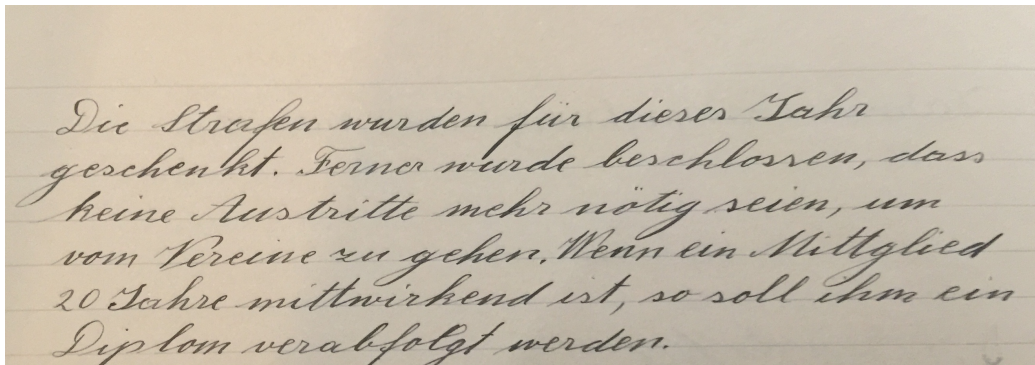 Die Strafen wurden für dieses Jahr
geschenkt. Ferner wurde beschlossen, dass
keine Austritte mehr nötig seien, um
vom Vereine zu gehen. Wenn ein Mittglied
20 Jahre mittwirkend ist, so soll ihm ein
Diplom verabfolgt werden.